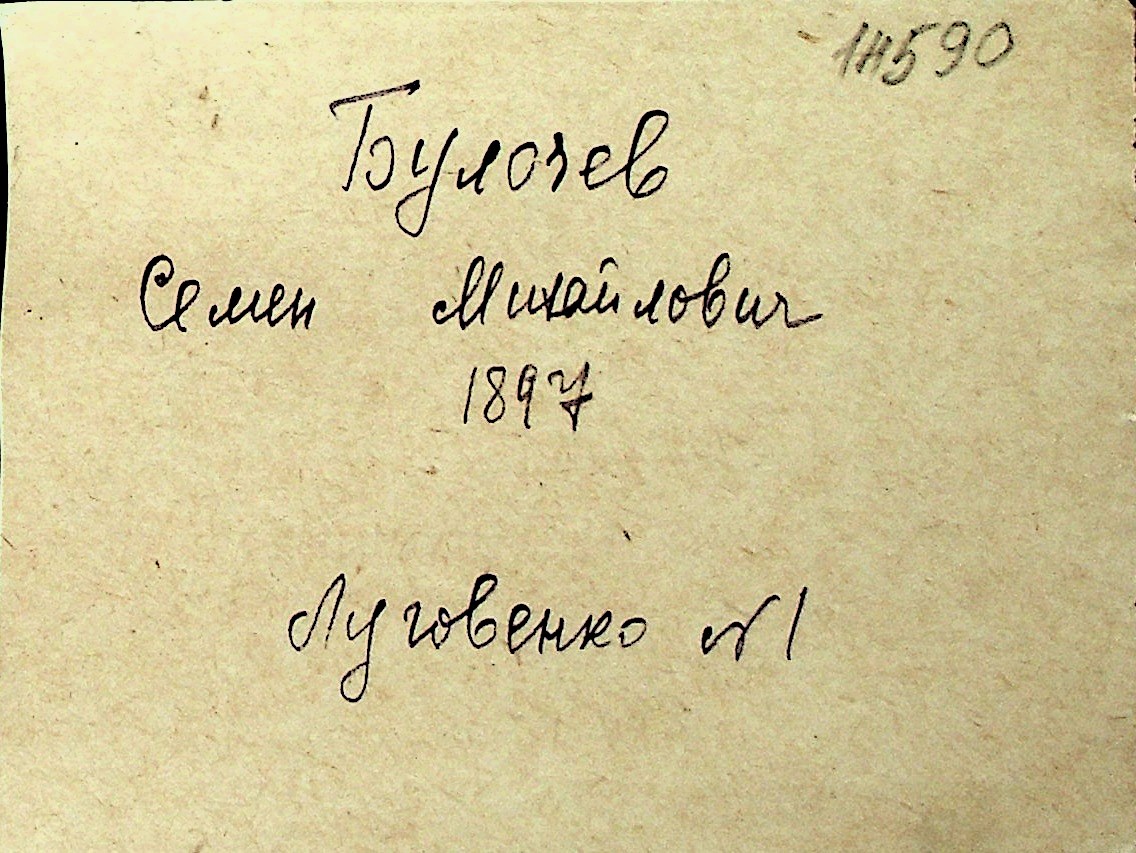 14590
Булочев
Семен Михайлович
1897
Луговенко №1